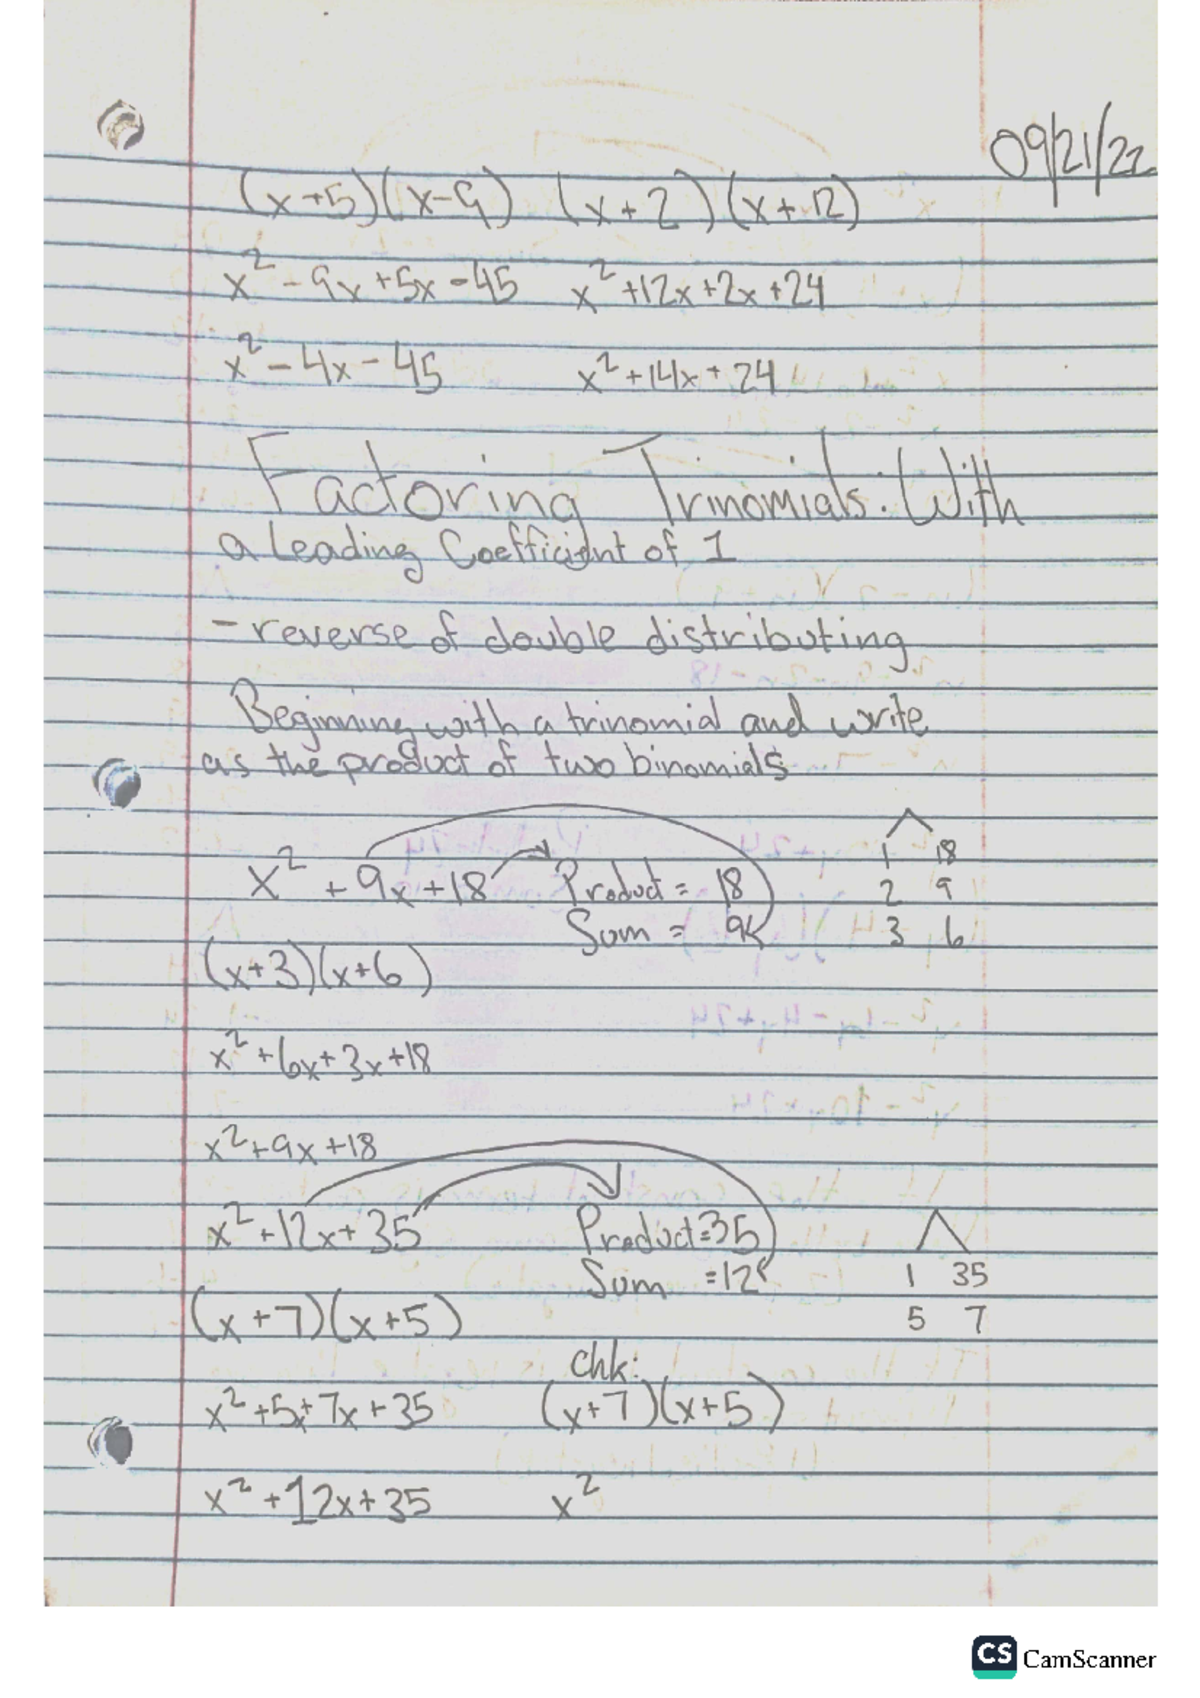 09/21/22
(x+5)(x-9) (x+2)(x+12)
x² - 9x +5x -45 x² +12x +2x +24
x² - 4x - 45 x² +14x + 24
Factoring Trinomials: With
a Leading Coefficient of 1
- reverse of double distributing
Beginning with a trinomial and write
as the product of two binomials
x² + 9x +18 Product = 18 1 18
Sum = 9 2 9
3 6
(x+3)(x+6)
x² +6x+3x+18
x²+9x+18
x²+12x+35 Product=35
Sum =12 1 35
(x+7)(x+5) 5 7
chk:
x²+5x+7x+35 (x+7)(x+5)
x² +12x+35 x²
CS CamScanner